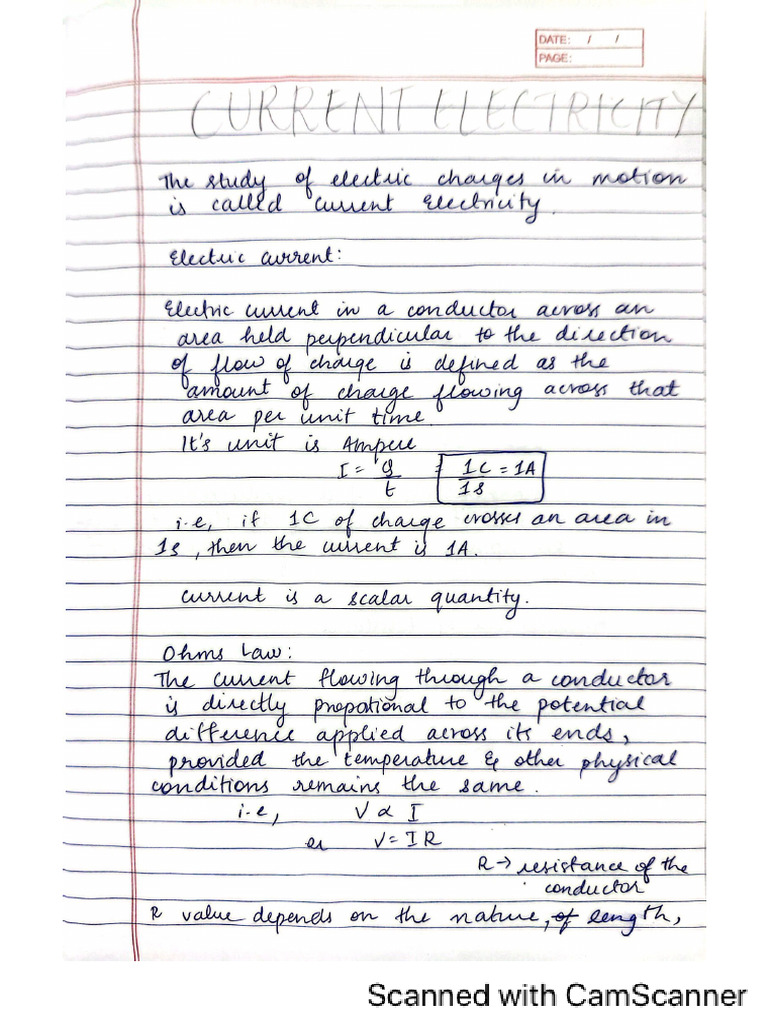 DATE: / /
PAGE:
CURRENT ELECTRICITY
The study of electric charges in motion
is called current Electricity.
Electric current:
Electric current in a conductor across an
area held perpendicular to the direction
of flow of charge is defined as the
amount of charge flowing across that
area per unit time.
It's unit is Ampere
I = Q/t = 1C/1s = 1A
i.e, if 1C of charge crosses an area in
1s, then the current is 1A.
current is a scalar quantity.
Ohms Law:
The current flowing through a conductor
is directly propotional to the potential
difference applied across its ends,
provided the temperature & other physical
conditions remains the same.
i.e, V ∝ I
or V = IR
R → resistance of the
conductor
R value depends on the nature, of length,
Scanned with CamScanner